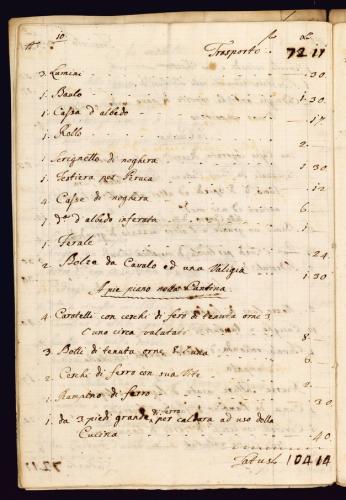 10.
Trasporto 72 17
3. Lumini 1 30
1. Baulo 1. 30
1. Cassa d'albedo 17
1. Rollo 2.
1. Scrignetto di noghera 1 30
1. Testiera per Peruca 12
4 Casse di noghera 6.
7 d.e d'albedo inferata 1
1. Ferale 24
2. Bolze da Cavalo ed una Valigia 1 30
A pie piano nella Cantina
4 Carotelli con cerchi di fero di tenuta orne 3
l'uno circa valutati 8
3. Botti di tenuta orne l'una
2. Cerchi di ferro con sua Vite 2.
1. Rampino di ferro 30
1. da 3 piedi grande di ferro per caldara ad uso della
Cucina 40
Latus 104 14
72.17